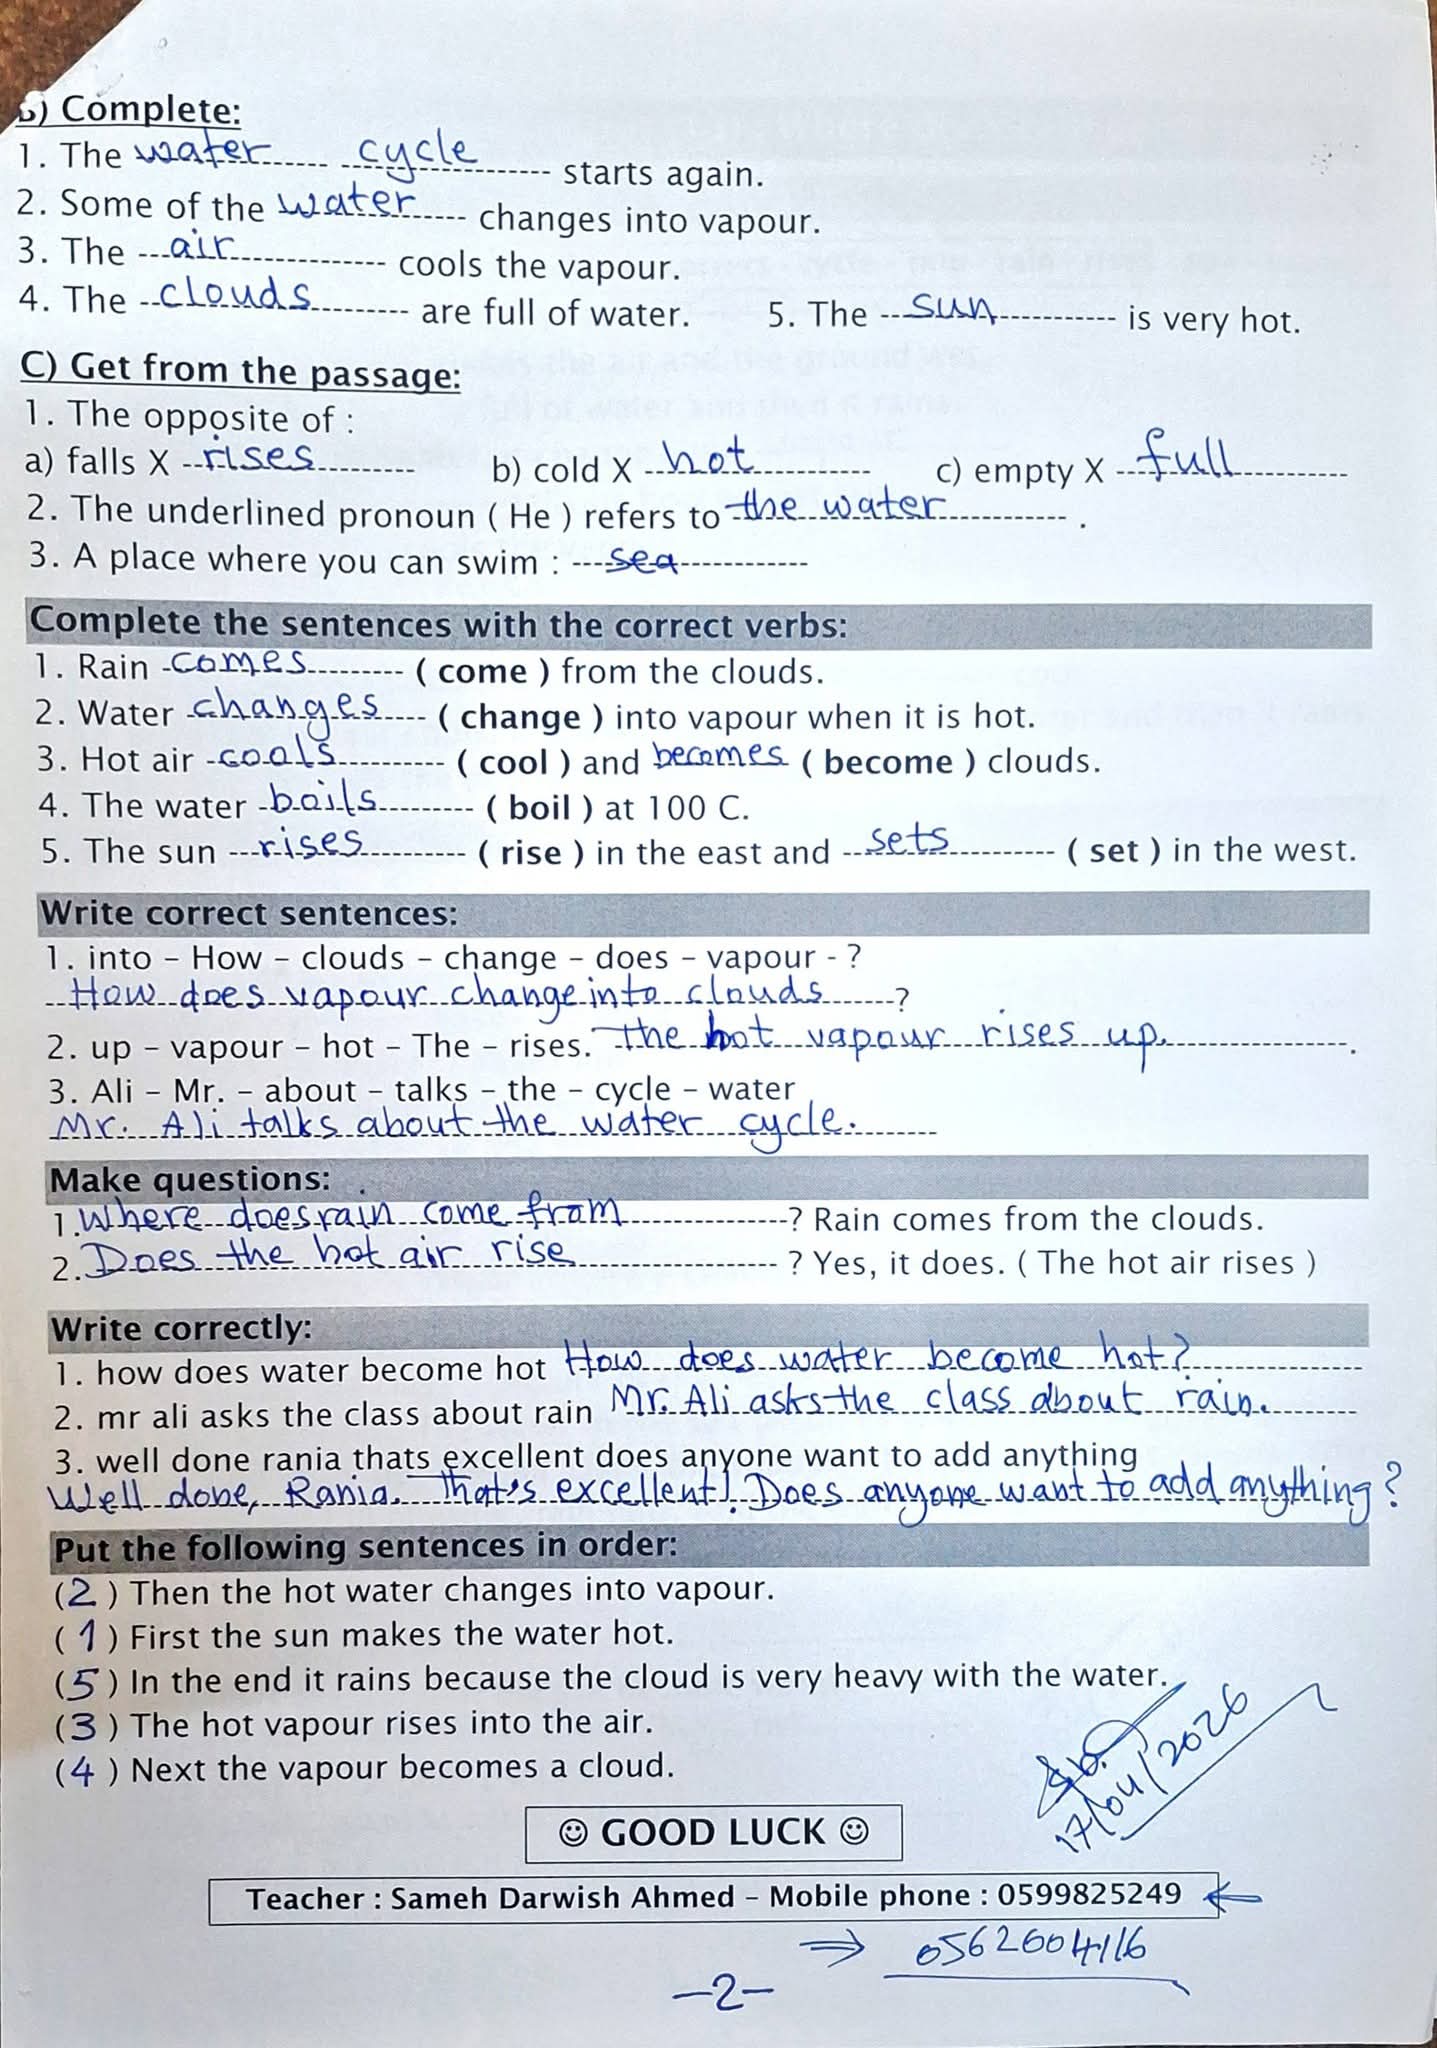 B) Complete:
1. The water cycle starts again.
2. Some of the water changes into vapour.
3. The air cools the vapour.
4. The clouds are full of water. 5. The sun is very hot.
C) Get from the passage:
1. The opposite of :
a) falls X rises b) cold X hot c) empty X full
2. The underlined pronoun ( He ) refers to the water .
3. A place where you can swim : sea
Complete the sentences with the correct verbs:
1. Rain comes ( come ) from the clouds.
2. Water changes ( change ) into vapour when it is hot.
3. Hot air cools ( cool ) and becomes ( become ) clouds.
4. The water boils ( boil ) at 100 C.
5. The sun rises ( rise ) in the east and sets ( set ) in the west.
Write correct sentences:
1. into – How – clouds – change – does – vapour - ?
How does vapour change into clouds ?
2. up – vapour – hot – The – rises. The hot vapour rises up. .
3. Ali – Mr. – about – talks – the – cycle – water
Mr. Ali talks about the water cycle.
Make questions:
1. Where does rain come from ? Rain comes from the clouds.
2. Does the hot air rise ? Yes, it does. ( The hot air rises )
Write correctly:
1. how does water become hot How does water become hot?
2. mr ali asks the class about rain Mr. Ali asks the class about rain.
3. well done rania thats excellent does anyone want to add anything
Well done, Rania. That's excellent! Does anyone want to add anything?
Put the following sentences in order:
(2) Then the hot water changes into vapour.
(1) First the sun makes the water hot.
(5) In the end it rains because the cloud is very heavy with the water.
(3) The hot vapour rises into the air.
(4) Next the vapour becomes a cloud.
17/04/2026
☺ GOOD LUCK ☺
Teacher : Sameh Darwish Ahmed – Mobile phone : 0599825249 ←
⇒ 0562604116
-2-